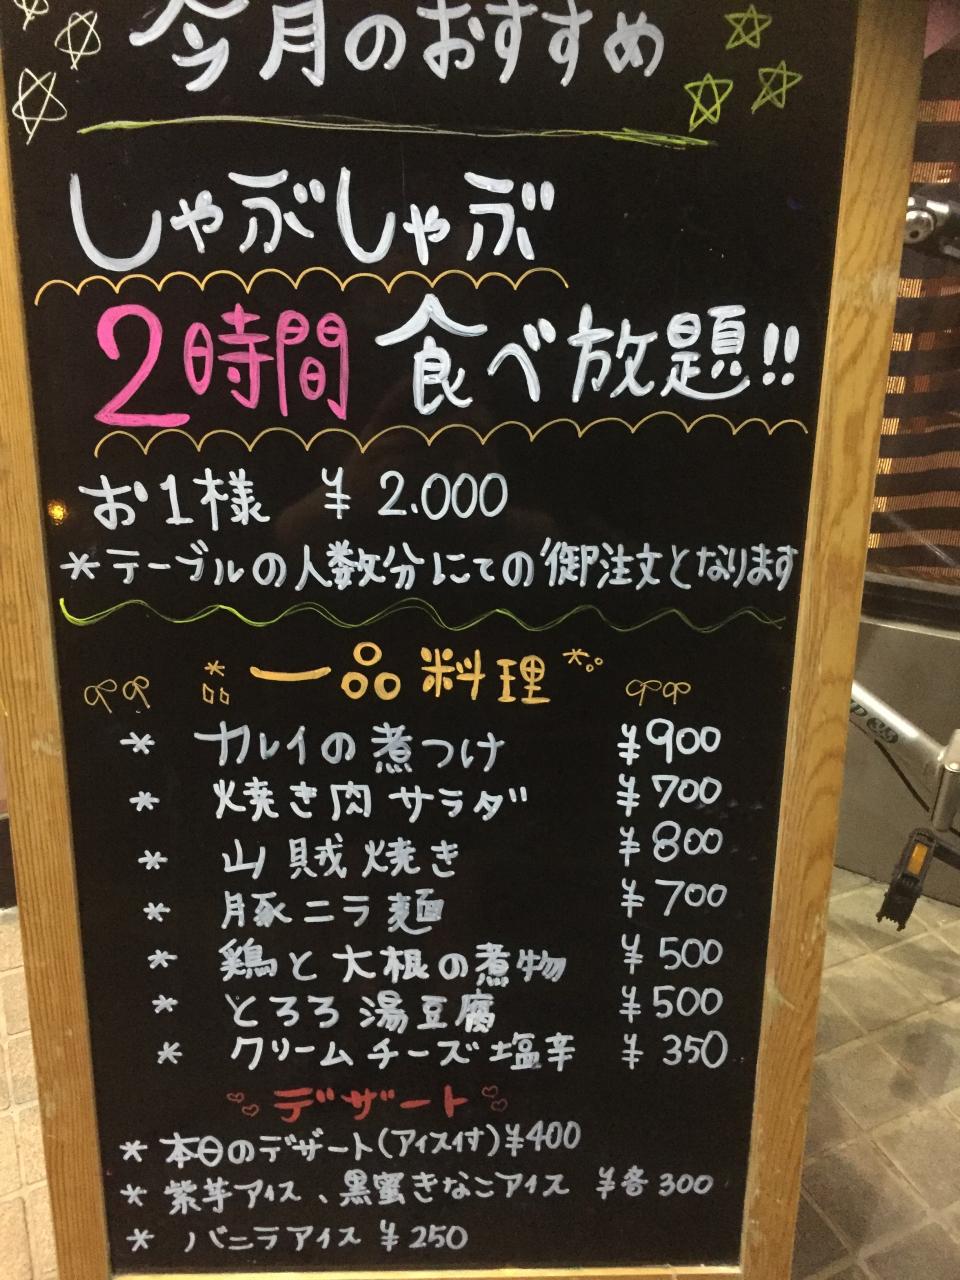 今月のおすすめ
しゃぶしゃぶ
2時間 食べ放題!!
お1様 ¥2.000
*テーブルの人数分にての御注文となります
一品料理
* カレイの煮つけ ¥900
* 焼き肉サラダ ¥700
* 山賊焼き ¥800
* 豚ニラ麺 ¥700
* 鶏と大根の煮物 ¥500
* とろろ湯豆腐 ¥500
* クリームチーズ塩辛 ¥350
デザート
* 本日のデザート(アイス付)¥400
* 紫芋アイス、黒蜜きなこアイス ¥各300
* バニラアイス ¥250